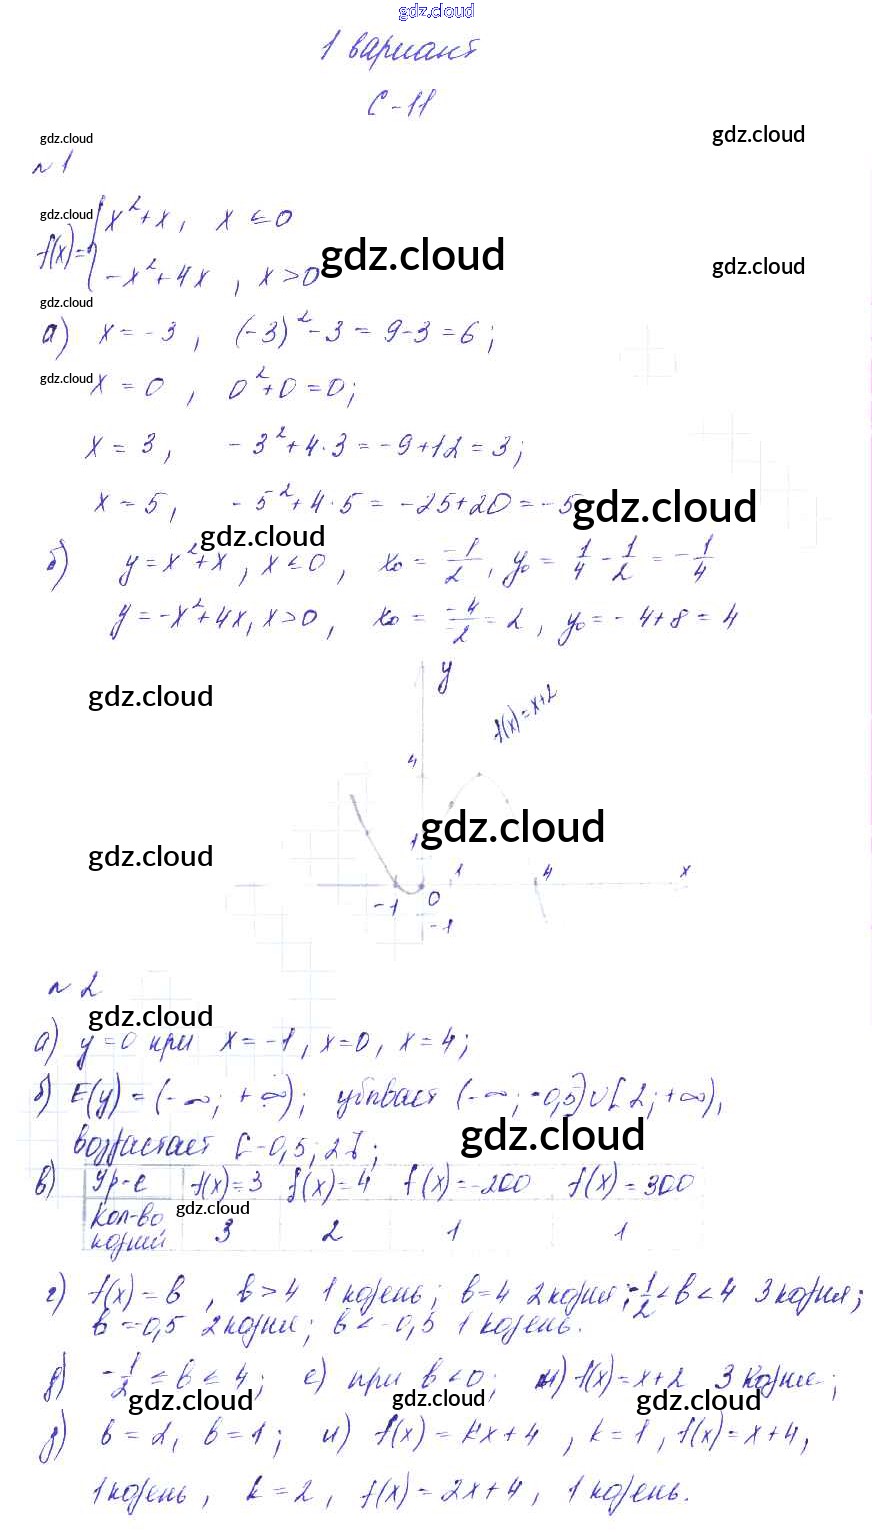 gdz.cloud
1 вариант
С-11
gdz.cloud gdz.cloud
№1
gdz.cloud
f(x)= { x²+x, x ≤ 0
-x²+4x, x>0
gdz.cloud gdz.cloud
gdz.cloud
а) x = -3, (-3)²-3 = 9-3 = 6;
gdz.cloud
x = 0, 0²+0 = 0;
x = 3, -3²+4·3 = -9+12 = 3;
x = 5, -5²+4·5 = -25+20 = -5
gdz.cloud
gdz.cloud
б) y = x²+x, x ≤ 0, x₀ = -1/2, y₀ = 1/4 - 1/2 = -1/4
y = -x²+4x, x>0, x₀ = -4/-2 = 2, y₀ = -4+8 = 4
y
gdz.cloud
f(x)=x+2
4
gdz.cloud
1
gdz.cloud
1 4 x
-1 0
-1
№2
gdz.cloud
а) y=0 при x=-1, x=0, x=4;
б) E(y) = (-∞; +∞); убывает (-∞; -0,5)∪[2; +∞),
gdz.cloud
возрастает [-0,5; 2];
в) Ур-е f(x)=3 f(x)=4 f(x)=-200 f(x)=300
gdz.cloud
Кол-во корний 3 2 1 1
г) f(x)=b, b>4 1 корень; b=4 2 корня; -1/2<b<4 3 корня;
b=-0,5 2 корня; b<-0,5 1 корень.
д) -1/2 ≤ b ≤ 4; е) при b<0; ж) f(x)=x+2 3 корня;
gdz.cloud gdz.cloud gdz.cloud
b=2, b=1; и) f(x)=kx+4, k=1, f(x)=x+4,
1 корень, k=2, f(x)=2x+4, 1 корень.